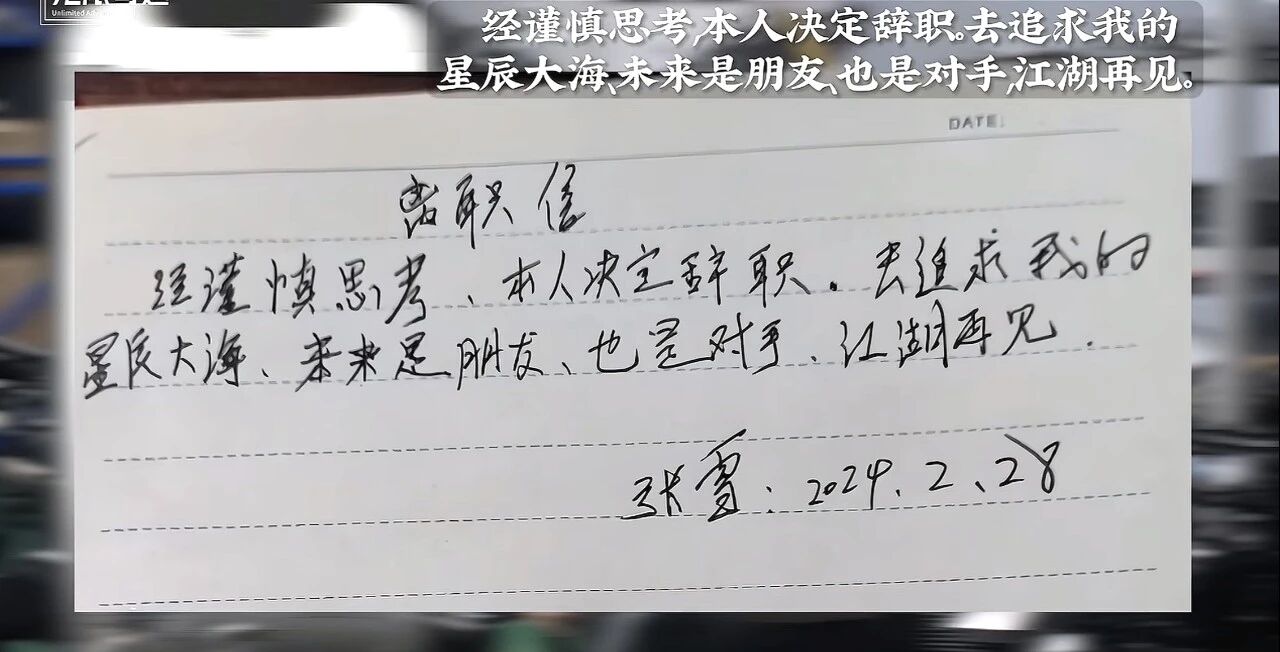 Unlimited
经谨慎思考,本人决定辞职。去追求我的
星辰大海、未来是朋友、也是对手,江湖再见。
DATE:
离职信
经谨慎思考、本人决定辞职。去追求我的
星辰大海、未来是朋友、也是对手、江湖再见.
张雪:2024.2、28